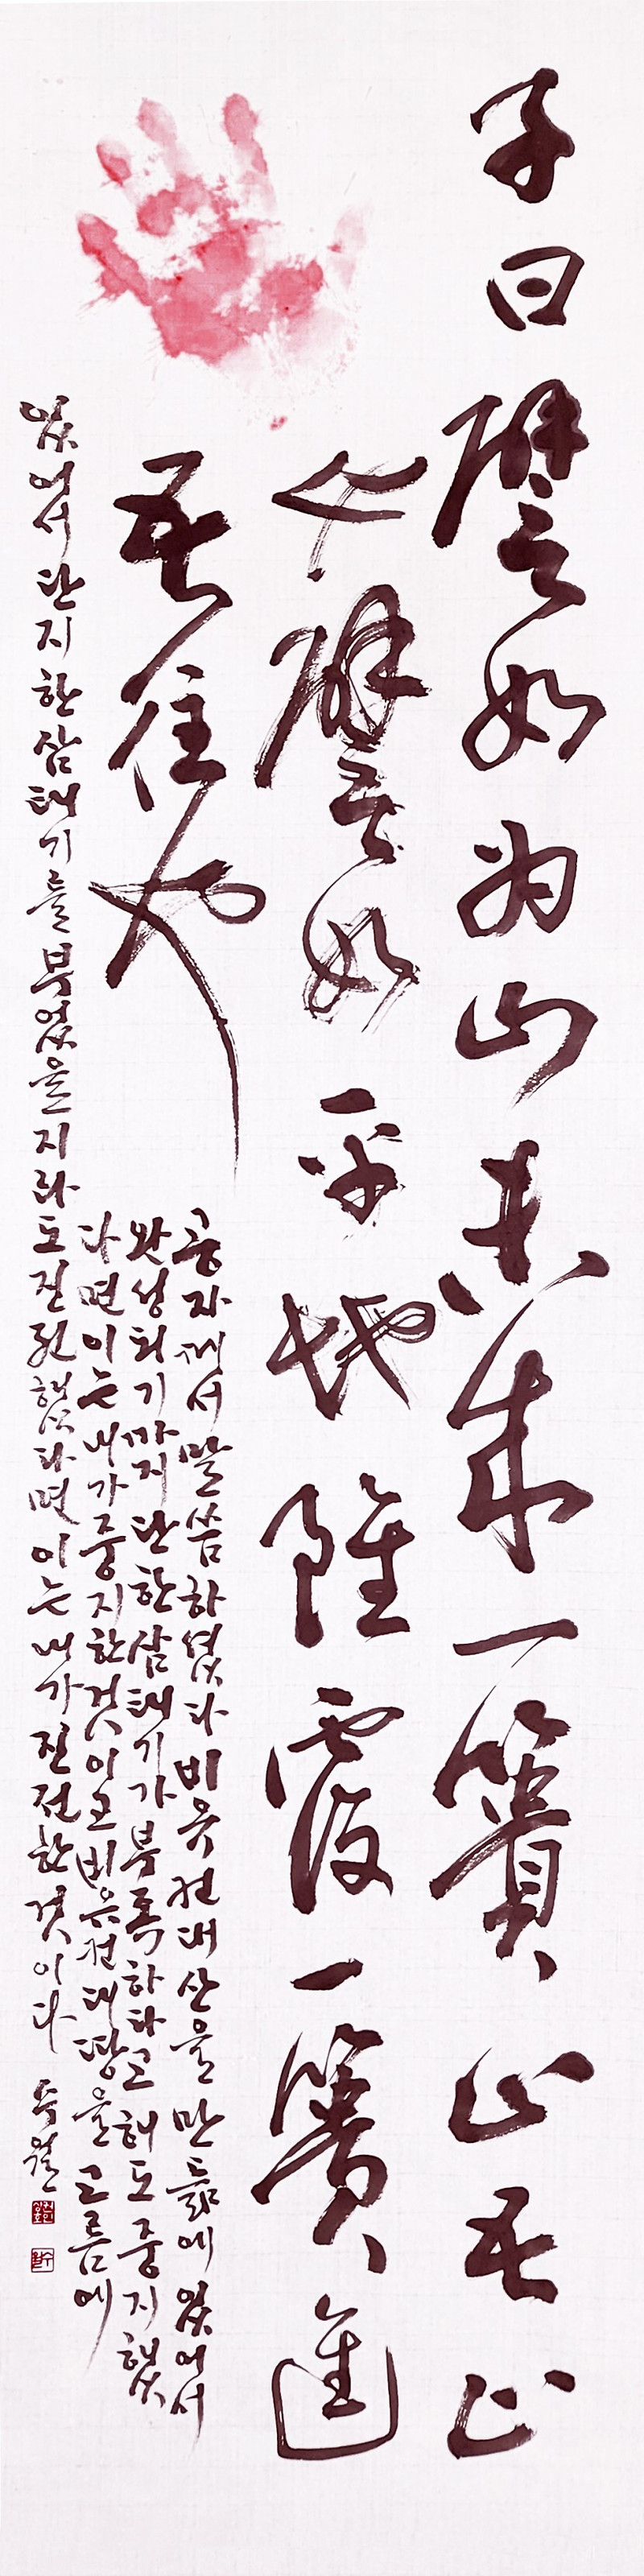 子曰譬如爲山未成一簣止吾止
也譬如平地雖覆一簣進
吾往也
공자께서 말씀하셨다 비유컨대 산을 만듦에 있어서
완성되기까지 단 한 삼태기가 부족하다고 해도 중지했
다면 이는 내가 중지한 것이고 비유컨대 땅을 고름에
있어서 단지 한 삼태기를 부었을지라도 진전했다면 이는 내가 진전한 것이다